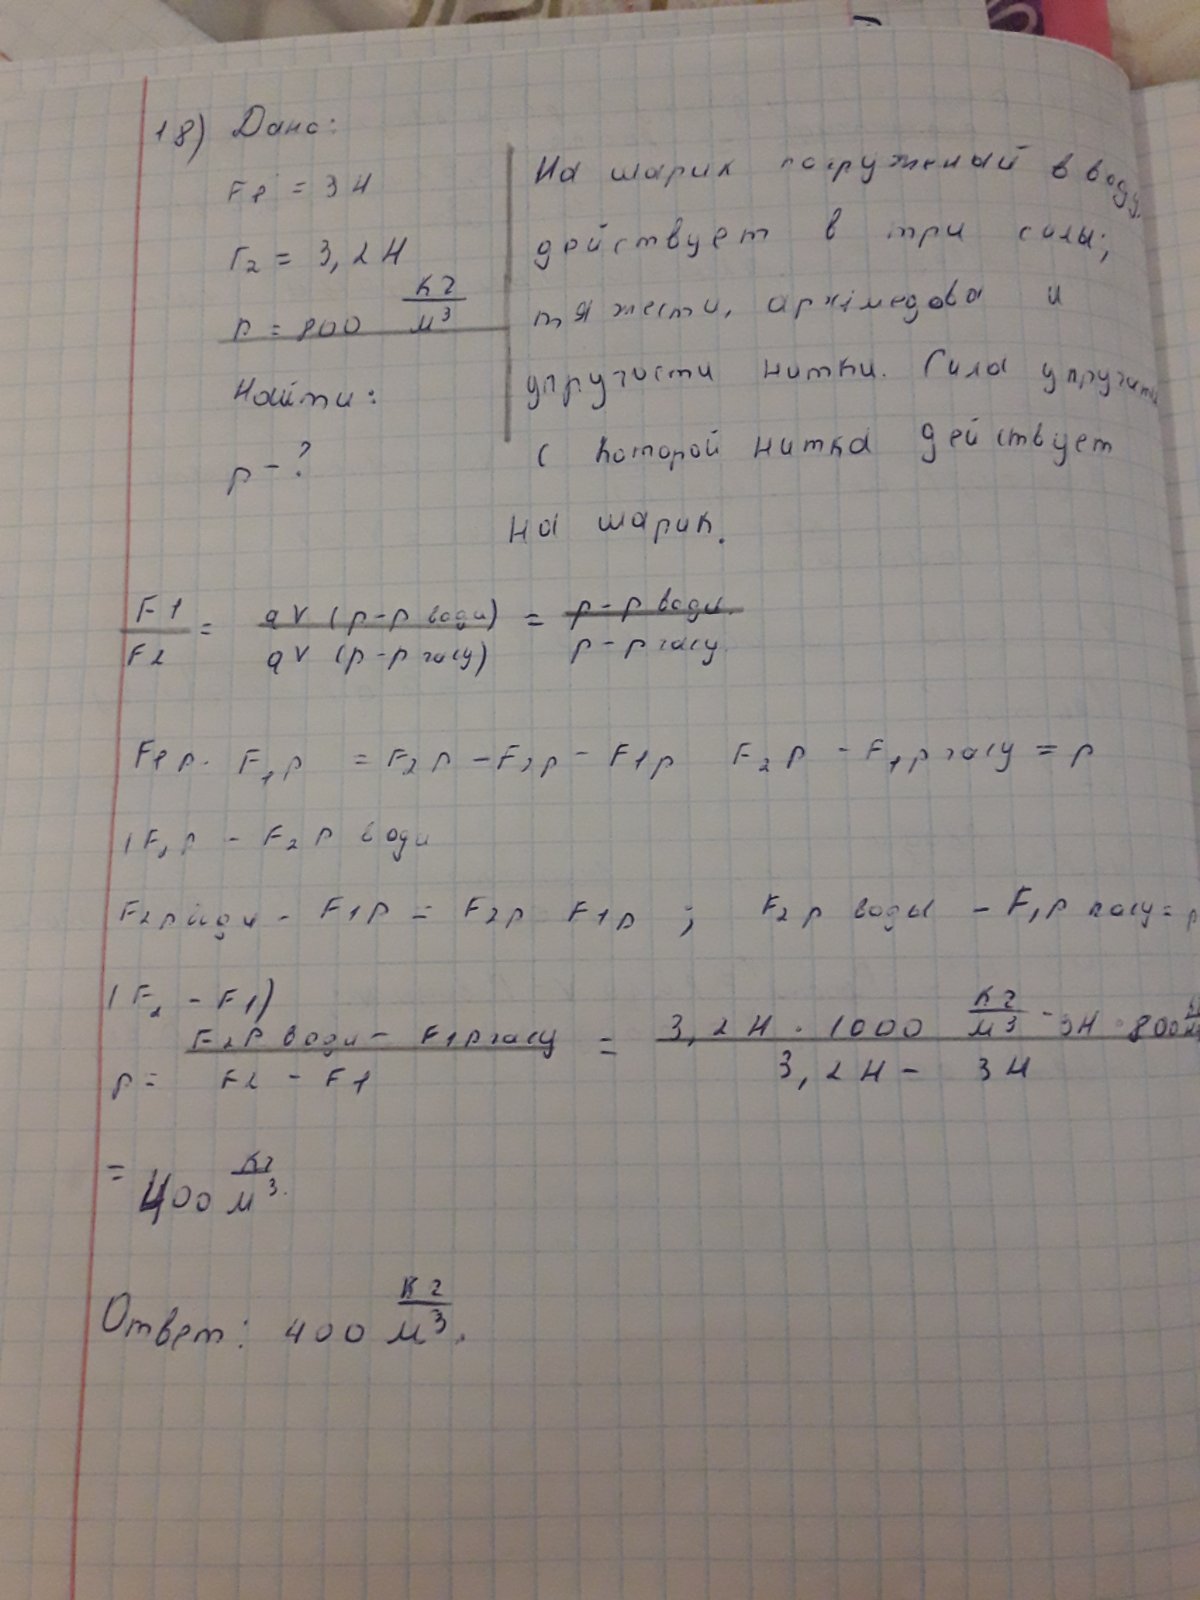 18) Дано:
F1 = 3 Н
F2 = 3,2 Н
p = 800 кг/м³
Найти:
p - ?
На шарик погруженый в воду,
действует в три силы;
тяжести, архімедова и
упругости нитки. Сила упругити
с которой нитка действует
на шарик.
F1/F2 = gV (p-p води)/gV (p-p гасу) = p-p води./p-p гасу.
F1 p. F1 p = F2 p - F2 p - F1 p F2 p - F1 p гасу = p
(F1 p - F2 p води
F2 p води - F1 p = F2 p F1 p ; F2 p воды - F1 p гасу = p
(F2 - F1)
p = F2 p води - F1 p гасу/F2 - F1 = 3,2 Н · 1000 кг/м³ - 3Н · 800 кг/м³/3,2 Н - 3 Н
= 400 кг/м³.
Ответ: 400 кг/м³.